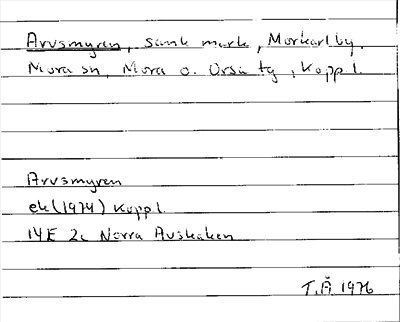 Arvsmyren, sank mark, Morkarlby.
Mora sn, Mora o. Orsa tg, Koppl.
Arvsmyren
ek (1974) Koppl.
14E 2c Norra
T.Å 1976